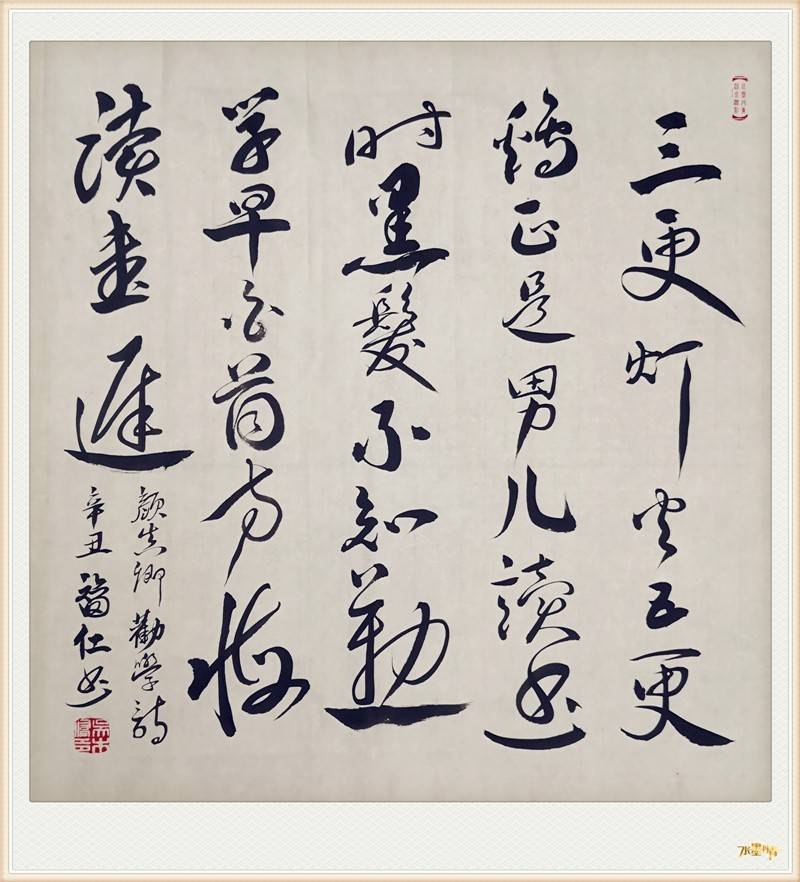 三更灯火五更
鸡正是男儿读书
时黑髮不知勤
学早白首方悔
读书遲
颜真卿勸學詩
辛丑福仁书
水墨丹青